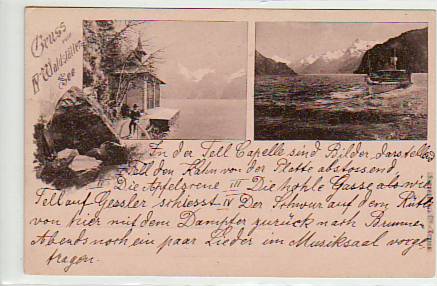 Gruss vom
Waldstätter
See
In der Tell Capelle sind Bilder darstellend
I Tell den Kahn von der Platte abstossend
II Die Apfelscene III Die hohle Gasse als wie
Tell auf Gessler schiesst IV Der Schwur auf dem Rütli
von hier mit dem Dampfer zurück nach Brunnen
Abends noch ein paar Lieder im Musiksaal vorge
tragen.